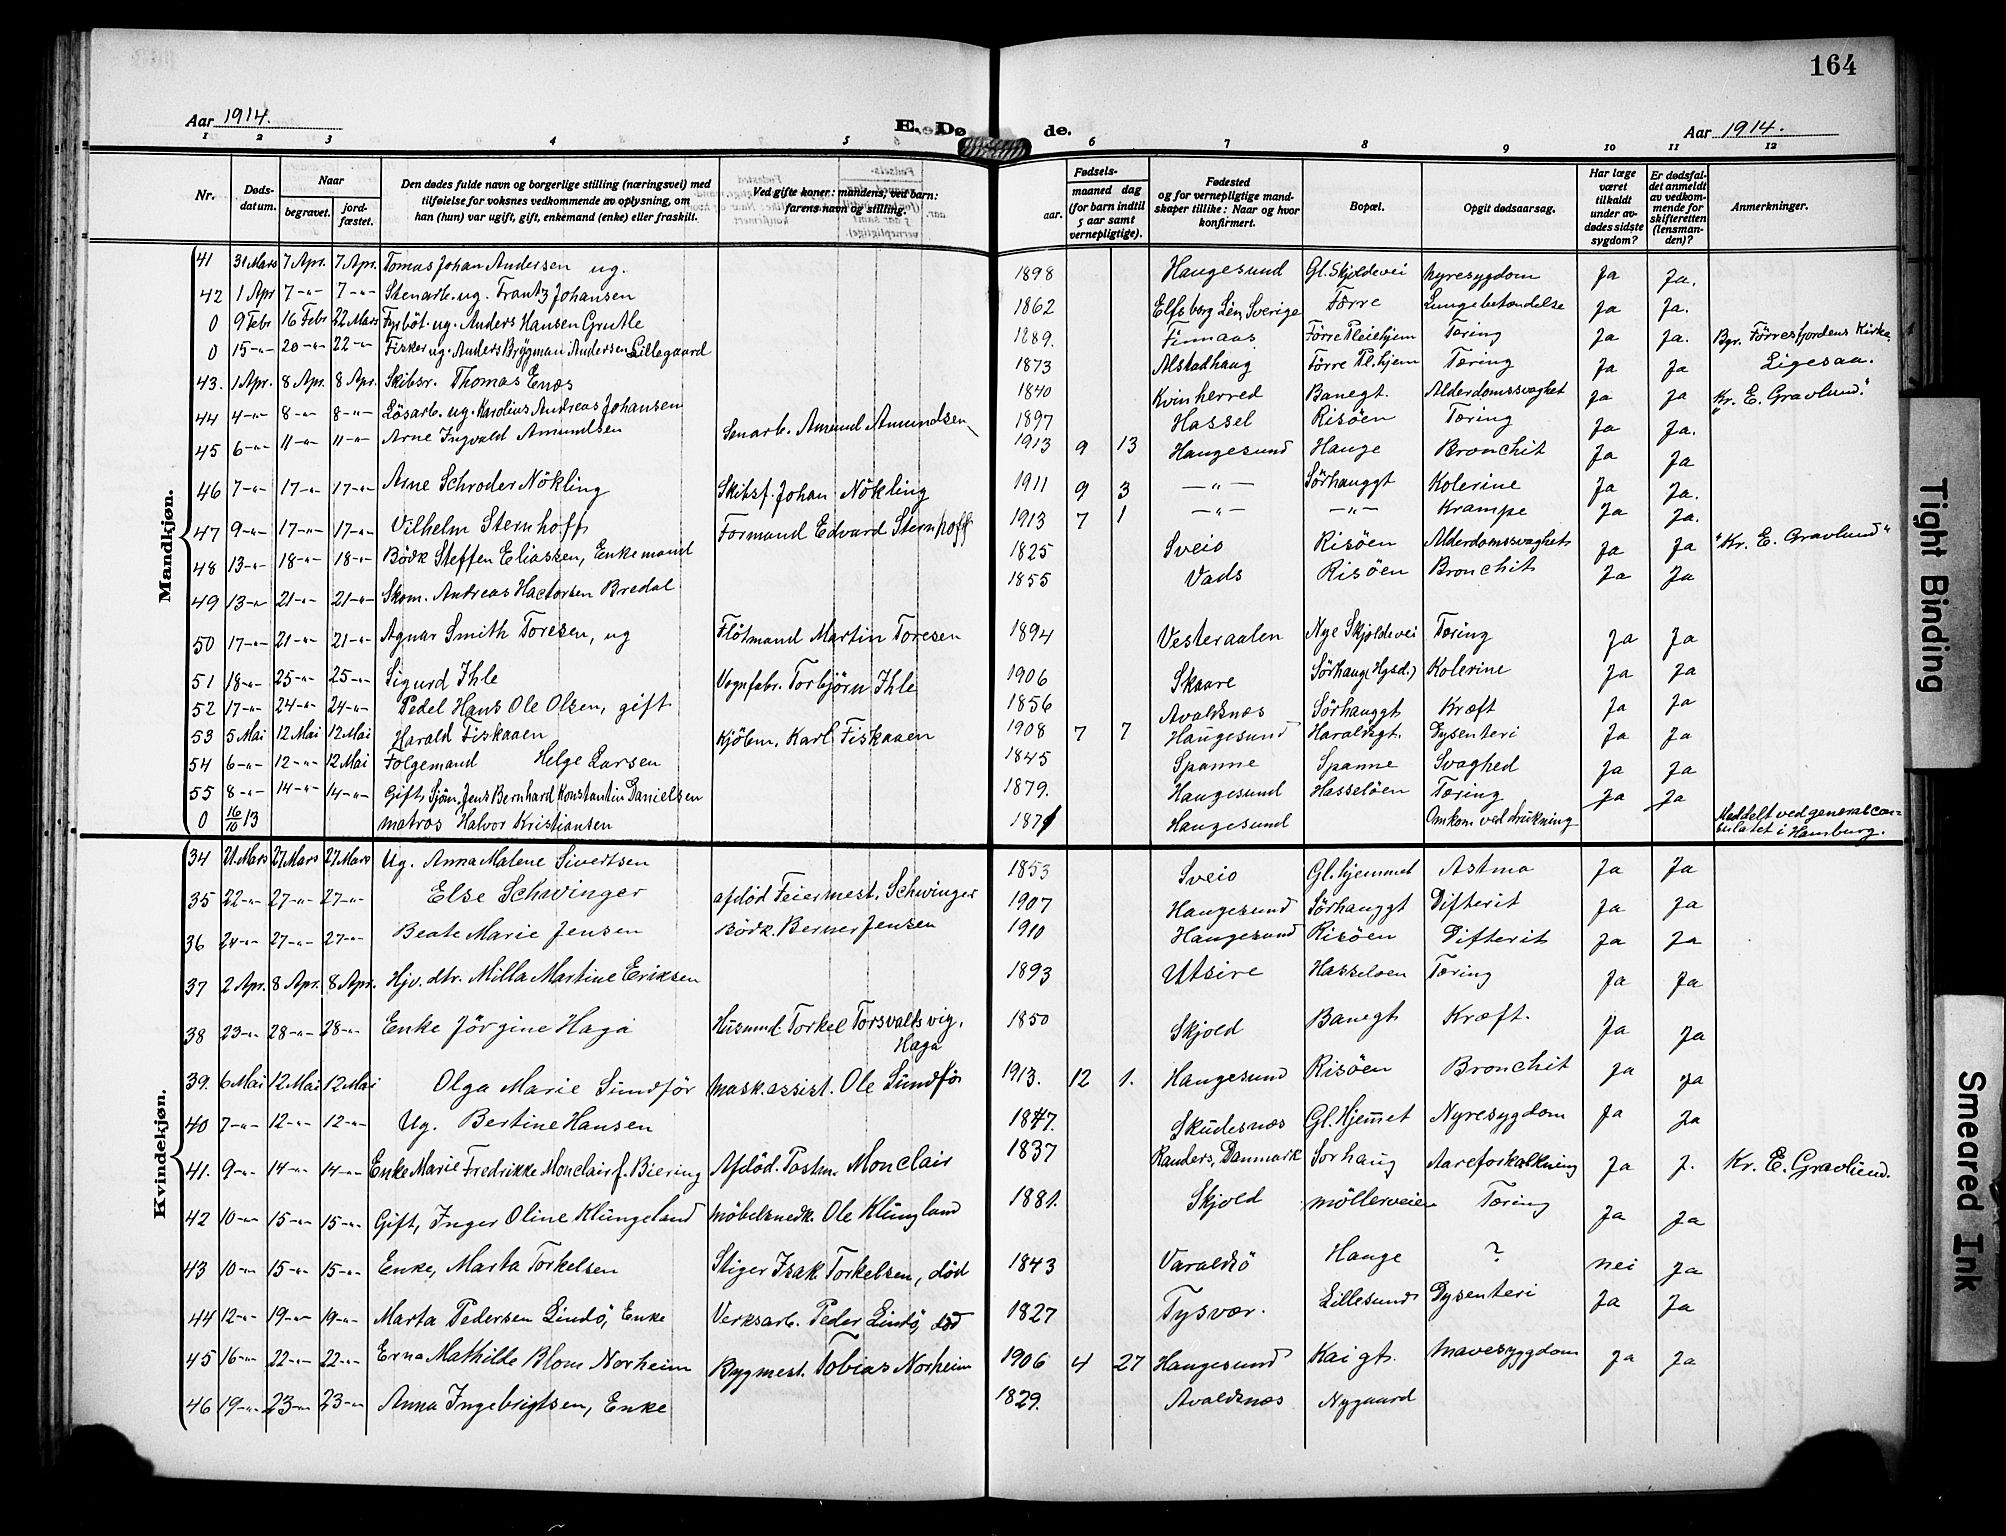 164
Aar 1914. E. Dø de. Aar 1914.
1 2 3 4 5 6 7 8 9 10 11 12
Nr. Døds-datum. Naar begravet. jord-fæstet. Den dødes fulde navn og borgerlige stilling (næringsvei) med tilføielse for voksnes vedkommende av oplysning, om han (hun) var ugift, gift, enkemand (enke) eller fraskilt. Ved gifte koner: mandens, ved barn: farens navn og stilling. Fødsels- aar. maaned dag (for barn indtil 5 aar samt vernepligtige). Fødested og for vernepligtige mand-skaper tillike: Naar og hvor konfirmert. Bopæl. Opgit dødsaarsag. Har læge været tilkaldt under av-dødes sidste sygdom? Er dødsfal-det anmeldt av vedkom-mende for skifteretten (lensman-den)? Anmerkninger.
Mandkjøn.
41 31 Mars 7 Apr. 7 Apr. Tomas Johan Andersen ug. 1898 Haugesund Gl. Skjoldevei Nyresygdom Ja Ja.
42 1 Apr 7 -"- 7 -"- Stenarb. ug. Frantz Johansen 1862 Elfsborg Len, Sverige Førre Lungebetændelse Ja Ja.
0 9 Febr 16 Febr 22 Mars Fyrböt. ug. Anders Hansen Grutle 1889. Finnaas Førre Pleiehjem Tæring Ja Ja. Begr. Førresfjordens Kirke.
0 15 -"- 20 -"- 22 -"- Fisker ug. Anders Brygman Andersen Lillegaard 1873 Alstadhaug Førre Pl.hjem Tæring Ja Ja Ligesaa.
43. 1 Apr. 8 Apr. 8 Apr. Skibsr. Thomas Enæs 1840 Kvinherred Banegt. Alderdomssvaghet Ja Ja "Kr. E. Gravlund."
44 4 -"- 8 -"- 8 -"- Løsarb. ug. Karolius Andreas Johansen 1897 Hassel Risöen Tæring Ja Ja.
45 6 -"- 11 -"- 11 -"- Arne Ingvald Amundsen Stenarb. Amund Amundsen 1913 9 13 Haugesund Hauge Bronchit Ja Ja
46 7 -"- 17 -"- 17 -"- Arne Schroder Nökling Skibsf. Johan Nökling 1911 9 3 -"- Sörhauggt Kolerine Ja Ja.
47 9 -"- 17 -"- 17 -"- Vilhelm Sternhoff Formand Edvard Sternhoff 1913 7 1 -"- -"- Krampe Ja Ja.
48 13 -"- 18 -"- 18 -"- Bödk Steffen Eliassen, Enkemand 1825 Sveio Risöen Alderdomssvaghet Ja Ja "Kr. E. Gravlund"
49 13 -"- 21 -"- 21 -"- Skom. Andreas Hactorsen Bredal 1855 Vads Risöen Bronchit Ja Ja
50 17 -"- 21 -"- 21 -"- Agnar Smith Toresen, ug Flötmand Martin Toresen 1894 Vesteraalen Nye Skjoldevei Tæring Ja Ja
51 18 -"- 25 -"- 25 -"- Sigurd Ihle Vognfabr. Torbjörn Ihle 1906 Skaare Sörhaug (Hgsd.) Kolerine Ja Ja
52 17 -"- 24 -"- 24 -"- Pedel Hans Ole Olsen, gift 1856 Avaldsnes Sörhauggt Kræft Ja Ja
53 5 Mai 12 Mai 12 Mai Harald Fiskaaen Kjöbm. Karl Fiskaaen 1908 7 7 Haugesund Haraldsgt. Dysenteri Ja Ja
54 6 -"- 12 -"- 12 Mai Folgemand Helge Larsen 1845 Spanne Spanne Svaghed Ja Ja
55 8 -"- 14 -"- 14 -"- Gift, Sjøm. Jens Bernhard Konstantin Danielsen 1879. Haugesund Hasseløen Tæring Ja Ja
0 16/10 13 Matros Halvor Kristiansen Haugesund Omkom ved drukning Meddelt ved generalcon-sulatet i Hamburg.
Kvindekjøn.
34 21 Mars 27 Mars 27 Mars Ug. Anna Malene Sivertsen 1853 Sveio Gl. hjemmet Astma Ja Ja
35 22 -"- 27 -"- 27 -"- Else Schwinger afdöd Feiermest. Schwinger 1907 Haugesund Sörhauggt Difterit Ja Ja
36 24 -"- 27 -"- 27 -"- Beate Marie Jensen Bödk. Berner Jensen 1910 Haugesund Risöen Difterit Ja Ja
37 2 Apr. 8 Apr. 8 Apr. Hjv. dtr. Milla Martine Eriksen 1893 Utsire Hasseloen Tæring Ja Ja
38 23 -"- 28 -"- 28 -"- Enke Jörgine Haga Husmd Torkel Torsvaldsvig, Haga 1850 Skjold Banegt Kræft. Ja Ja
39. 6 Mai 12 Mai 12 Mai Olga Marie Sundför Mask.assist. Ole Sundfö 1913. 12 1. Haugesund Risöen Bronchit Ja Ja
40 7 -"- 12 -"- 12 -"- Ug. Bertine Hansen 1847. Skudesnæs Gl. Hjem̅et Nyresygdom Ja Ja
41. 9 -"- 14 -"- 14 -"- Enke Marie Fredrikke Monclair f. Biering Afdöd. Postm. Monclair 1837 Randers, Danmark Sorhaug Aareforkalkning Ja J. Kr. E. Gravlund.
42 10 -"- 15 -"- 15 -"- Gift, Inger Oline Klungeland Möbelsnedk. Ole Klungland 1881. Skjold Möllerveien Tæring Ja Ja
43 10 -"- 15 -"- 15 -"- Enke, Marta Torkelsen Stiger Isak Torkelsen, död 1843 Varaldsö Hauge ? nei Ja
44 12 -"- 19 -"- 19 -"- Marta Pedersen Lindö, Enke Verksarb. Peder Lindö, död 1827 Tysvær. Lillesund Dysenteri Ja Ja
45 16 -"- 22 -"- 22 -"- Erna Mathilde Blom Norheim Bygmest. Tobias Norheim 1906 4 27 Haugesund Kaigt. Mavesygdom Ja Ja
46 19 -"- 23 -"- 23 -"- Anna Ingebrigtsen, Enke 1829. Avaldsnæs Nygaard
Tight Binding
Smeared Ink